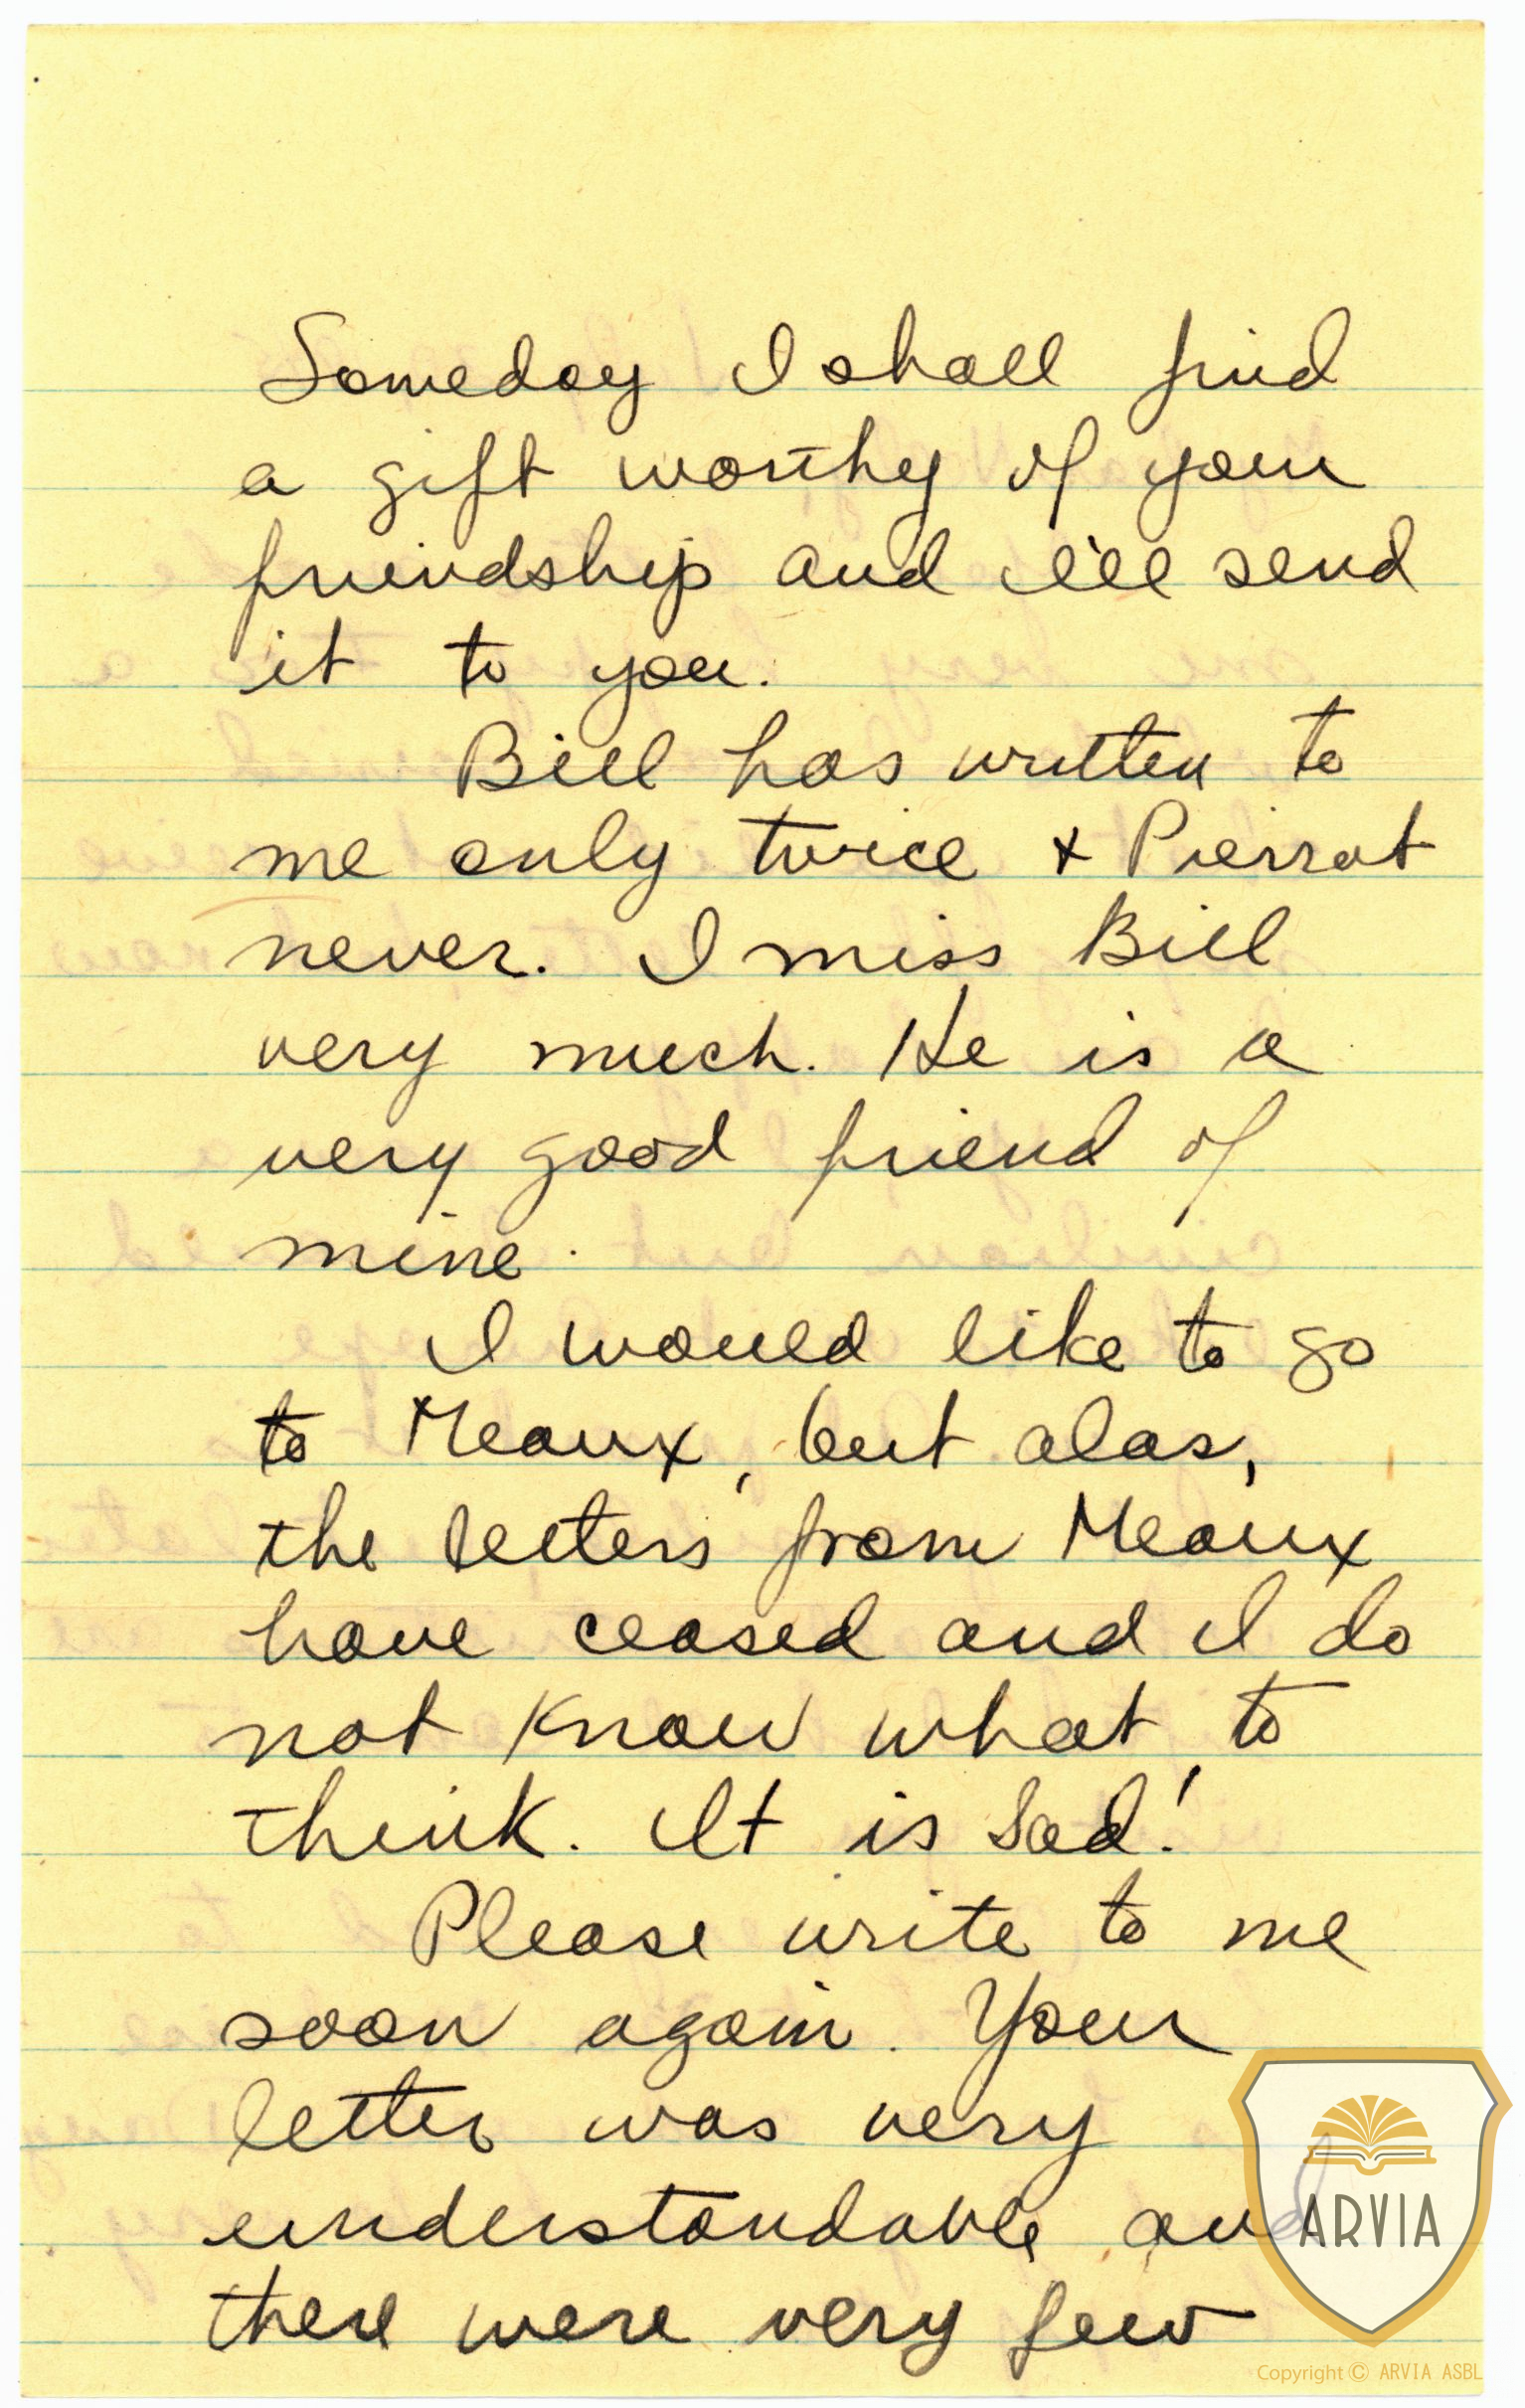 Someday I shall find
a gift worthy of your
friendship and I'll send
it to you.
Bill has written to
me only twice + Pierrot
never. I miss Bill
very much. He is a
very good friend of
mine.
I would like to go
to Meaux, but alas,
the letters from Meaux
have ceased and I do
not know what to
think. It is sad!
Please write to me
soon again. Your
letter was very
understandable and
there were very few
ARVIA
Copyright © ARVIA ASBL